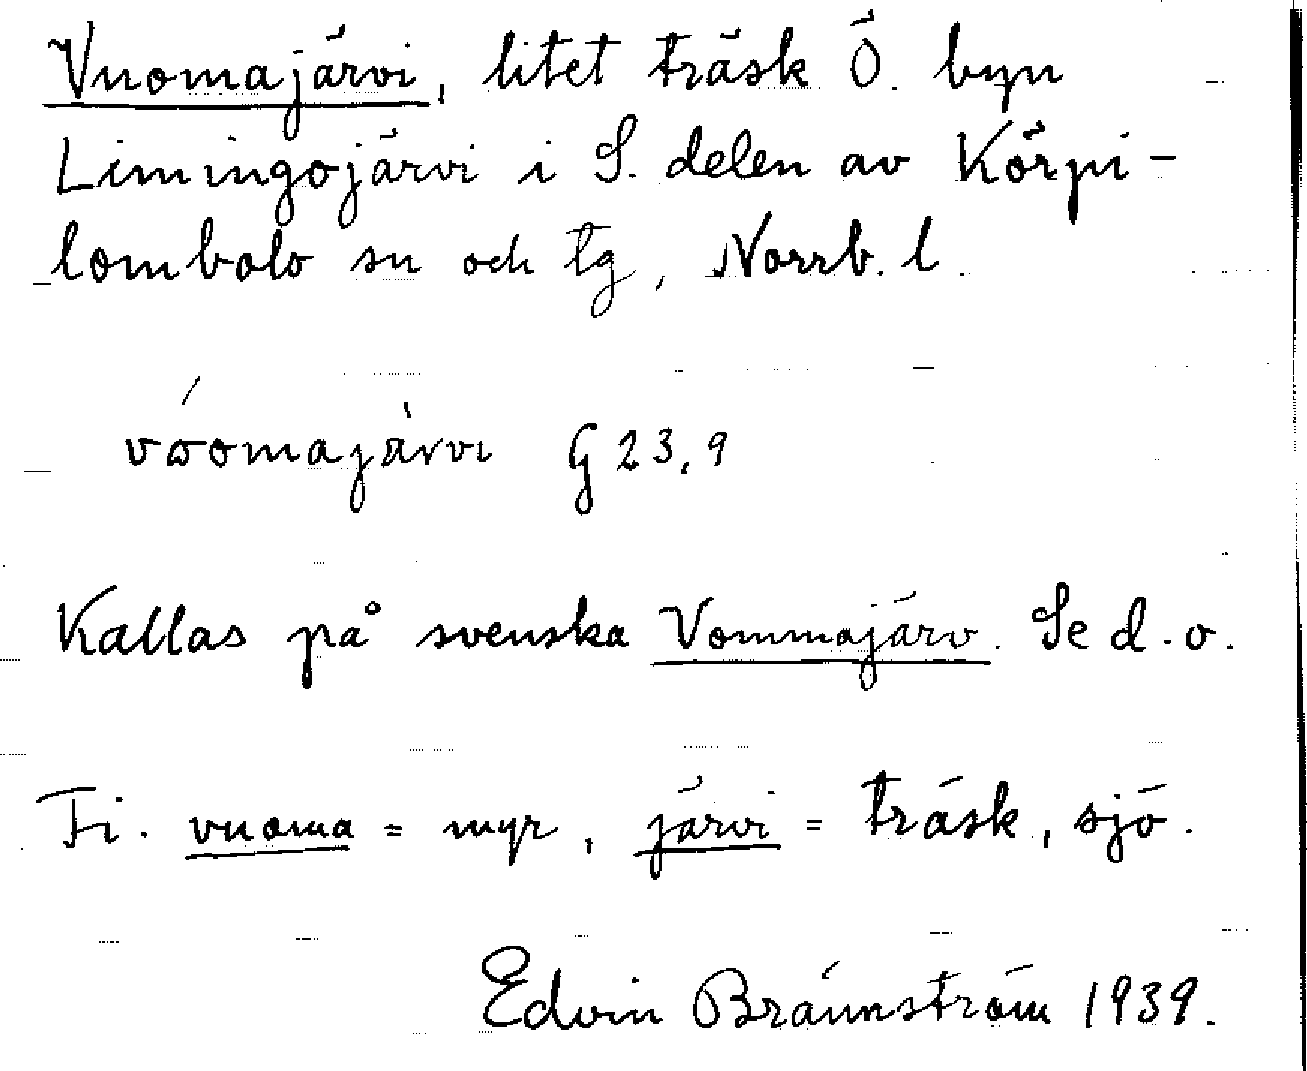 Vuomajärvi, litet träsk Ö. byn
Limingojärvi i S. delen av Körpi-
lombolo sn och tg, Norrb. l.
vóomajä̀rvi G 23,9
Kallas på svenska Vommajärv. Se d.o.
Fi. vuoma = myr, järvi = träsk, sjö.
Edvin Brännström 1939.